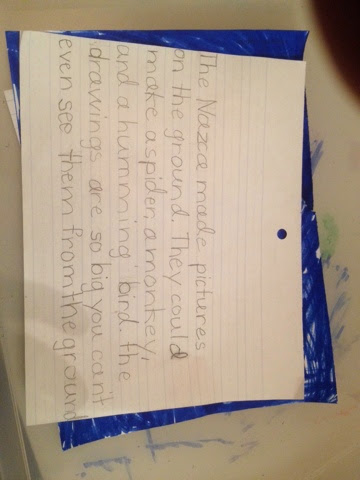 The Nazca made pictures
on the ground. They could
make a spider, a monkey,
and a humming bird. The
drawings are so big you can't
even see them from the ground